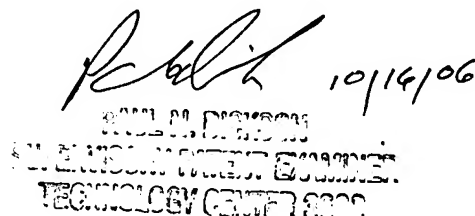 10/16/06
PAUL N. DICKSON
SUPERVISORY PATENT EXAMINER
TECHNOLOGY CENTER